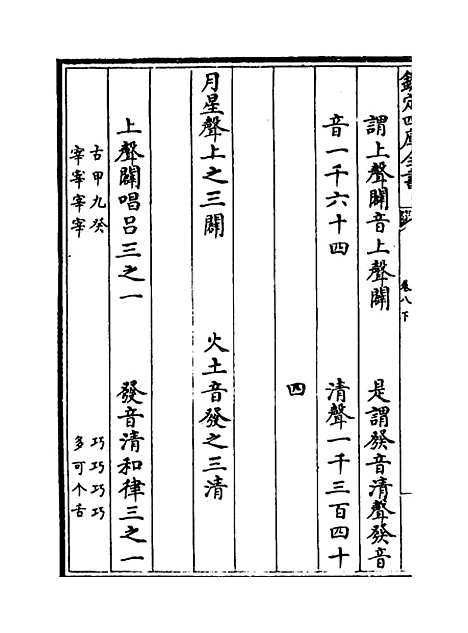 欽定四庫全書 卷八下
謂上聲闢音上聲闢 是謂發音清聲發音
音一千六十四 清聲一千三百四十
四
月星聲上之三闢 火土音發之三清
上聲闢唱呂三之一 發音清和律三之一
古甲九癸 巧巧巧巧
宰宰宰宰 多可个舌